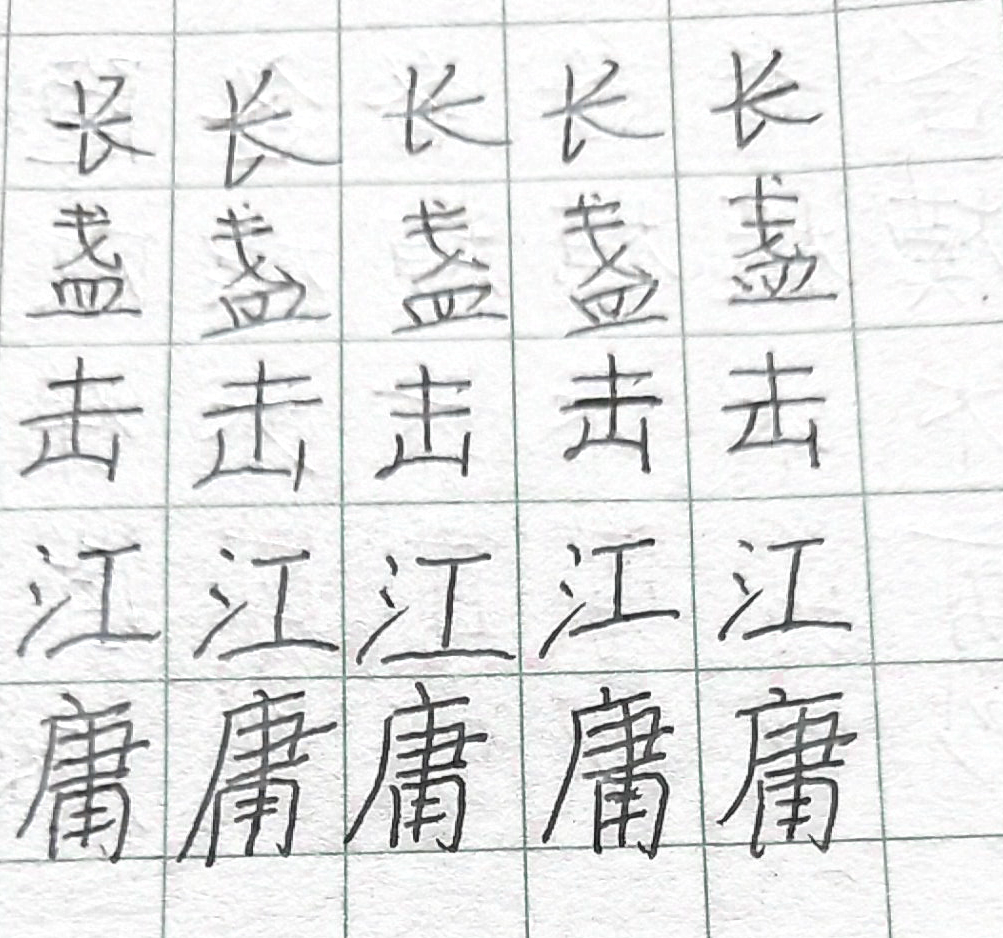 长长长长长
盏盏盏盏盏
击击击击击
江江江江江
庸庸庸庸庸